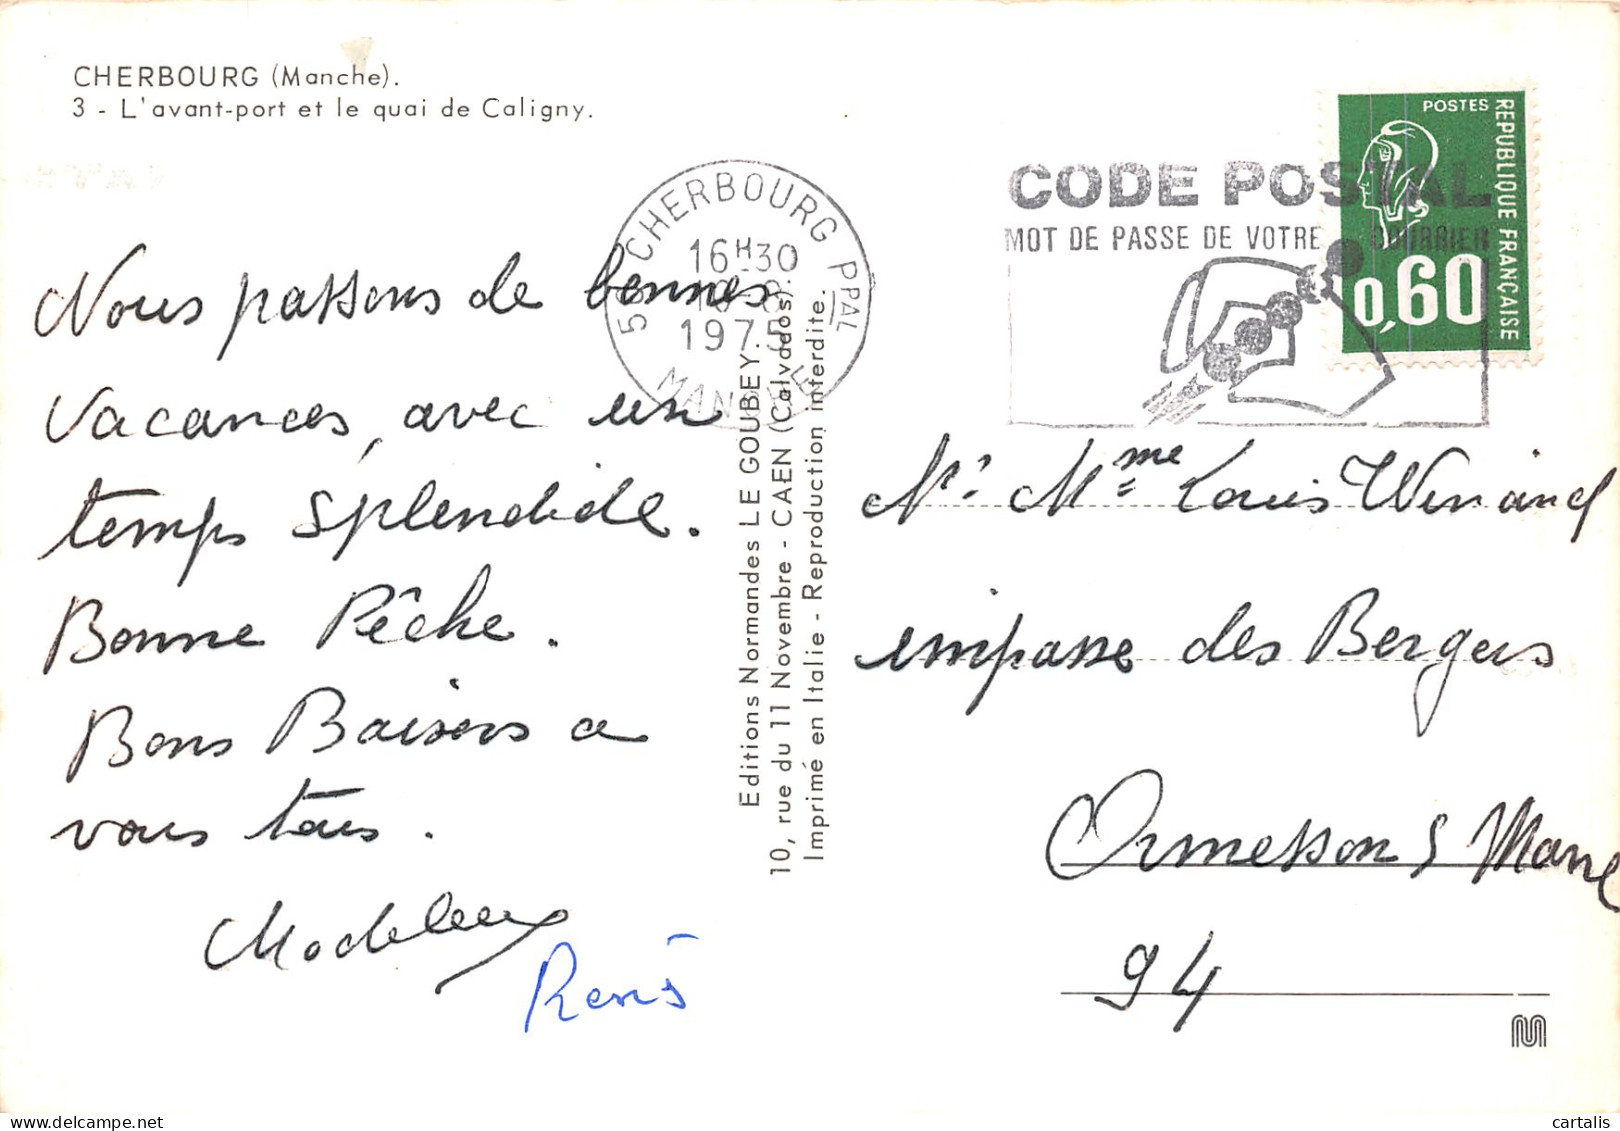 CHERBOURG (Manche).
3 - L'avant-port et le quai de Caligny.
Nous passons de bonnes
vacances, avec un
temps splendide.
Bonne Pêche.
Bons Baisers a
vous tous.
Madeleine
René
Editions Normandes LE GOUBEY.
10, rue du 11 Novembre - CAEN (Calvados).
Imprimé en Italie - Reproduction interdite.
50 CHERBOURG PPAL
16H30
1975
MANCHE
CODE POSTAL
MOT DE PASSE DE VOTRE COURRIER
POSTES
REPUBLIQUE FRANÇAISE
0,60
Mr Mme Louis Winand
impasse des Bergers
Ormesson s Marne
94
cartalis
delcampe.net